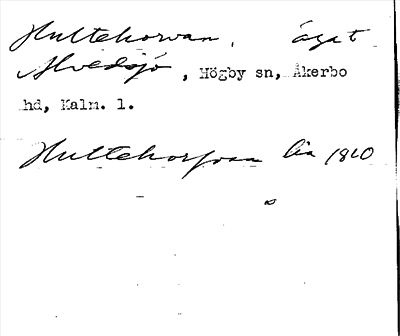 Hultehorvan. ägat
Alvedsjö, Högby sn, Åkerbo
hd, Kalm. l.
Hultehorfvan Lia 1810